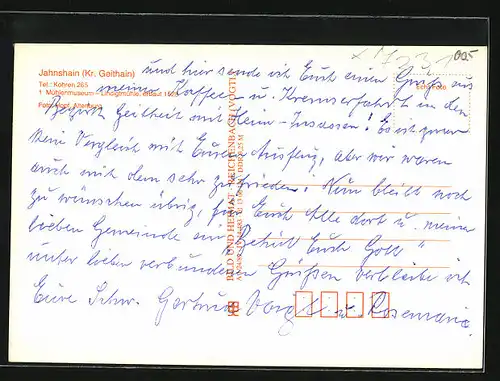 Jahnshain (Kr. Geithain)
Tel.: Kohren 265
1 Mühlenmuseum - Lindigtmühle, erbaut
Echt Foto
BILD UND HEIMAT REICHENBACH (VOGTL)
und hier sende ich Euch einen Gruß aus
meiner Kaffee u. Kremserfahrt in den
Bezirk Geithein mit Heim-Insassen! Es ist zwar
kein Vergleich mit Eurem Ausflug, aber wir waren
auch mit dem sehr zufrieden. Nun bleibt noch
zu wünschen übrig, für Euch Alle dort u. meine
lieben Gemeinde ein "Behüt Euch Gott"
unter lieben verbundenen Grüßen verbleibe ich
Eure Schw. Gertrud Voigt u. Rosemarie
005